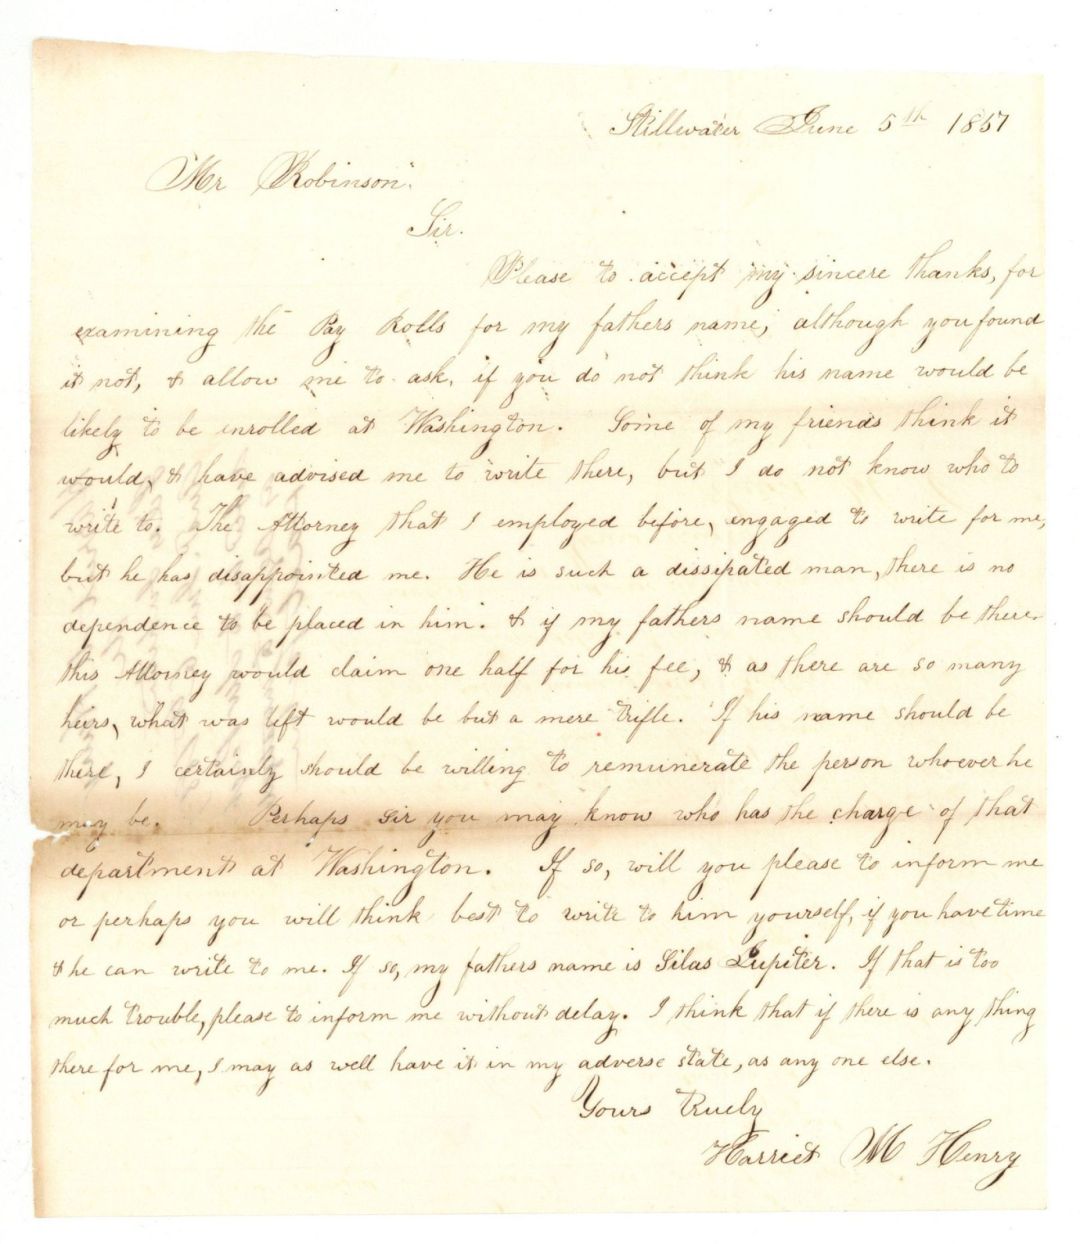 Stillwater June 5th 1857
Mr Robinson.
Sir.
Please to accept my sincere thanks, for
examining the Pay Rolls for my fathers name, although you found
it not, & allow me to ask, if you do not think his name would be
likely to be enrolled at Washington. Some of my friends think it
would, & have advised me to write there, but I do not know who to
write to. The Attorney that I employed before, engaged to write for me,
but he has disappointed me. He is such a dissipated man, there is no
dependence to be placed in him. & if my fathers name should be there
this Attorney would claim one half for his fee, & as there are so many
heirs, what was left would be but a mere trifle. If his name should be
there, I certainly should be willing to remunerate the person whoever he
may be. Perhaps sir you may know who has the charge of that
department at Washington. If so, will you please to inform me
or perhaps you will think best to write to him yourself, if you have time
& he can write to me. If so, my fathers name is Silas Jupiter. If that is too
much trouble, please to inform me without delay. I think that if there is any thing
there for me, I may as well have it in my adverse state, as any one else.
Yours truely
Harriet M Henry